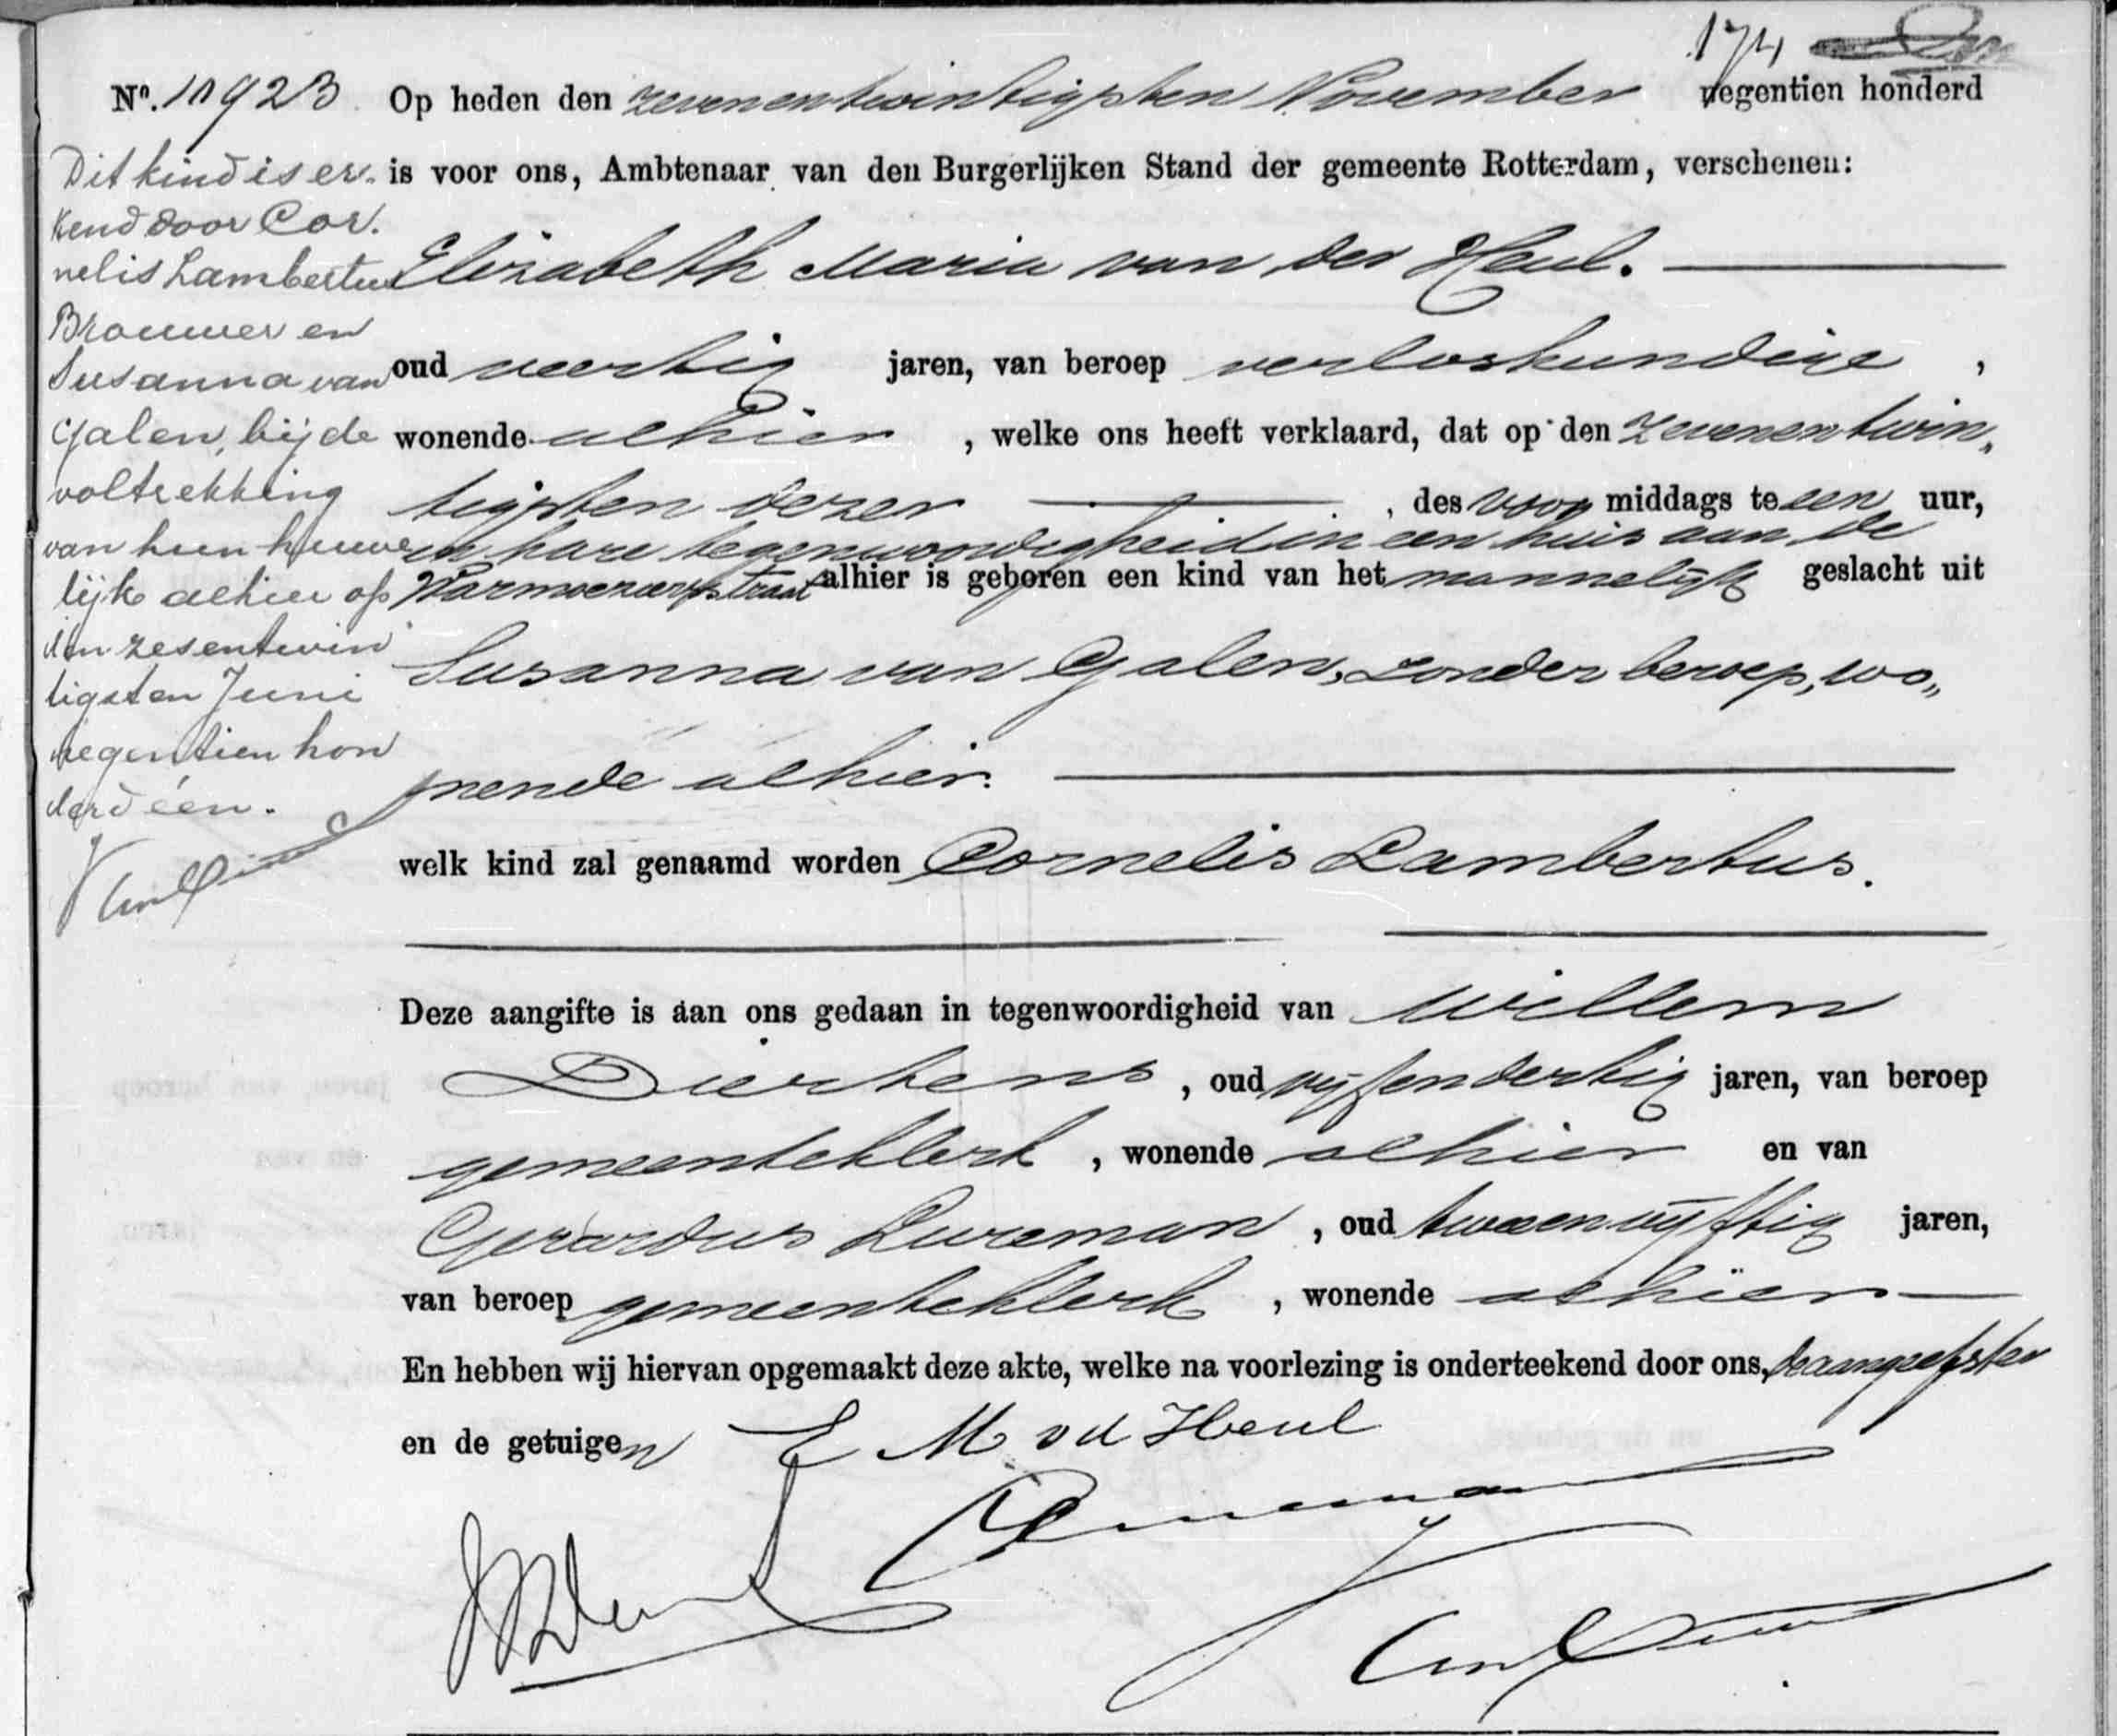 174
Nº. 10923 Op heden den zevenentwintigsten November negentien honderd
is voor ons, Ambtenaar van den Burgerlijken Stand der gemeente Rotterdam, verschenen:
Elizabeth Maria van der Heul.
oud veertig jaren, van beroep verloskundige,
wonende alhier, welke ons heeft verklaard, dat op den zevenentwin„
tigsten dezer, des voor middags te een uur,
in hare tegenwoordigheid in een huis aan de
Warmoezierstraat alhier is geboren een kind van het mannelijk geslacht uit
Susanna van Galen, zonder beroep, wo„
nende alhier.
welk kind zal genaamd worden Cornelis Lambertus.
Deze aangifte is aan ons gedaan in tegenwoordigheid van Willem
Dierkens, oud vijfendertig jaren, van beroep
gemeenteklerk, wonende alhier en van
Gerardus Lureman, oud tweeenvijftig jaren,
van beroep gemeenteklerk, wonende alhier
En hebben wij hiervan opgemaakt deze akte, welke na voorlezing is onderteekend door ons, de aangeefster
en de getuigen
E M v d Heul
Dit kind is er-
kend door Cor.
nelis Lambertus
Brouwer en
Susanna van
Galen, bij de
voltrekking
van hun huwe
lijk alhier op
den zesentwin
tigsten Juni
negentien hon
derd één.